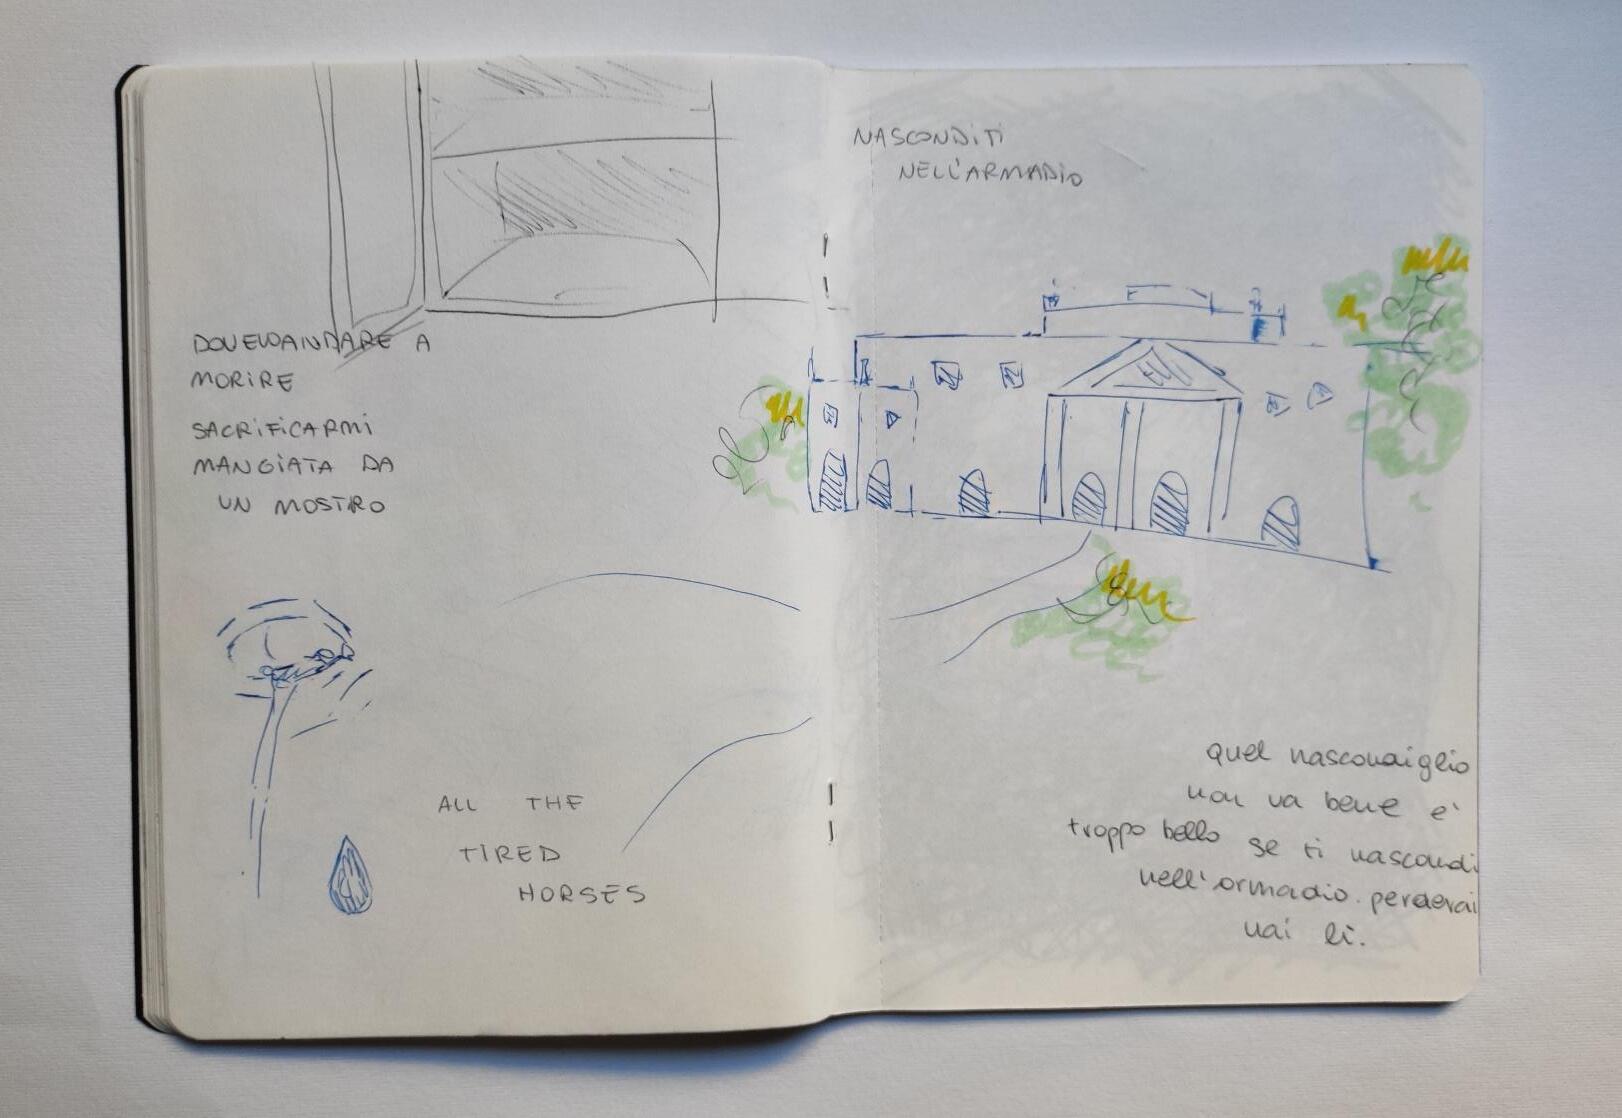 DOVEVO ANDARE A
MORIRE
SACRIFICARMI
MANGIATA DA
UN MOSTRO
ALL THE
TIRED
HORSES
NASCONDITI
NELL'ARMADIO
quel nascondiglio
non va bene e'
troppo bello se ti nascondi
nell'armadio. perderai
vai lì.